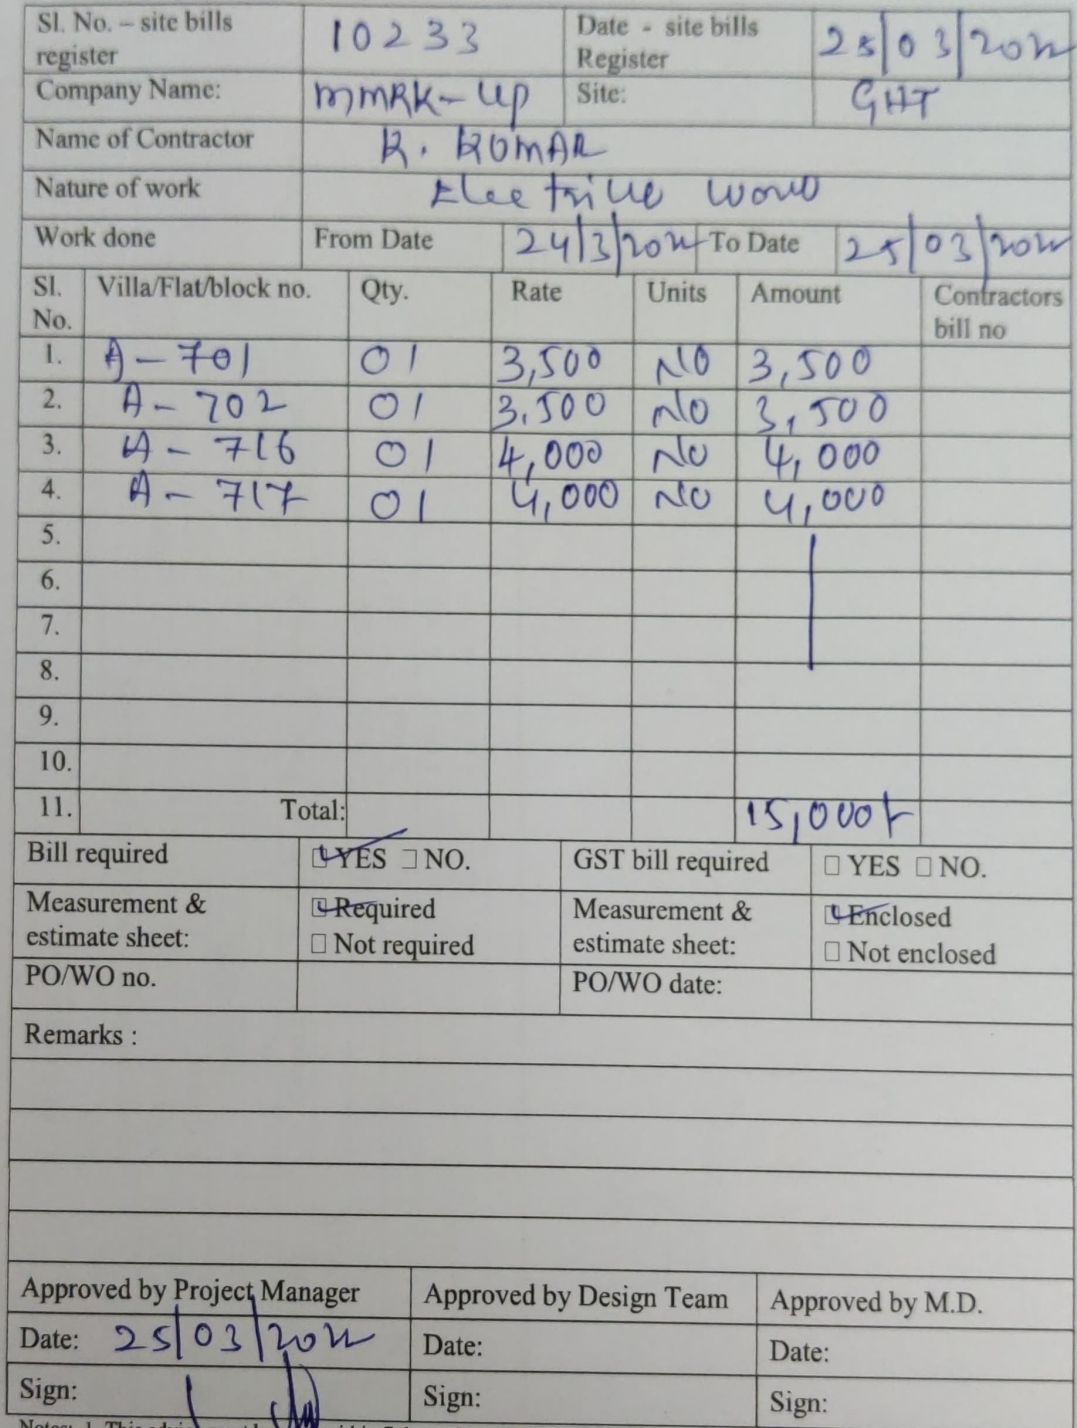 Sl. No. – site bills register 10233 Date - site bills Register 25/03/2022
Company Name: MMRK-UP Site: GHT
Name of Contractor K. KUMAR
Nature of work
Work done From Date 24/3/2022 To Date 25/03/2022
Sl. No. Villa/Flat/block no. Qty. Rate Units Amount Contractors bill no
1. A-701 01 3,500 NO 3,500
2. A-702 01 3,500 NO 3,500
3. A-716 01 4,000 NO 4,000
4. A-717 01 4,000 NO 4,000
5.
6.
7.
8.
9.
10.
11. Total: 15,000/-
Bill required YES NO. GST bill required YES NO.
Measurement & estimate sheet: Required Not required Measurement & estimate sheet: Enclosed Not enclosed
PO/WO no. PO/WO date:
Remarks :
Approved by Project Manager Approved by Design Team Approved by M.D.
Date: 25/03/2022 Date: Date:
Sign: Sign: Sign: